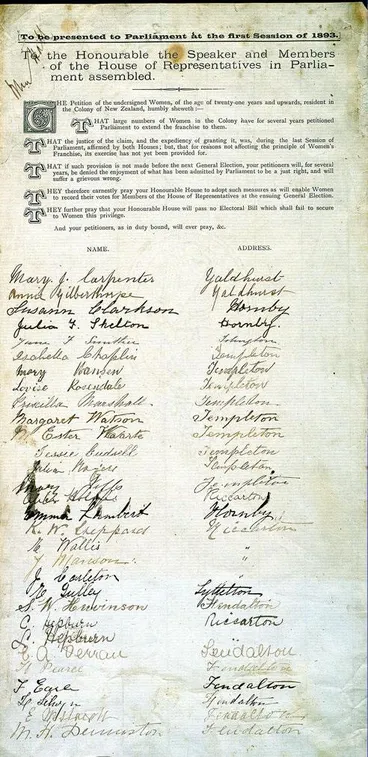 To be presented to Parliament at the first Session of 1893.
To the Honourable the Speaker and Members
of the House of Representatives in Parlia-
ment assembled.
THE Petition of the undersigned Women, of the age of twenty-one years and upwards, resident in
the Colony of New Zealand, humbly sheweth:—
THAT large numbers of Women in the Colony have for several years petitioned
Parliament to extend the franchise to them.
THAT the justice of the claim, and the expediency of granting it, was, during the last Session of
Parliament, affirmed by both Houses; but, that for reasons not affecting the principle of Women's
Franchise, its exercise has not yet been provided for.
THAT if such provision is not made before the next General Election, your petitioners will, for several
years, be denied the enjoyment of what has been admitted by Parliament to be a just right, and will
suffer a grievous wrong.
THEY therefore earnestly pray your Honourable House to adopt such measures as will enable Women
to record their votes for Members of the House of Representatives at the ensuing General Election.
THEY further pray your Honourable House will pass no Electoral Bill which shall fail to secure
to Women this privilege.
And your petitioners, as in duty bound, will ever pray, &c.
NAME. ADDRESS.
Mary J. Carpenter Yaldhurst
Anna Yaldhurst
Susann Clarkson Hornby
Julia F. Skelton Hornby
Templeton
Isabella Chaplin Templeton
Mary Hansen Templeton
Louise Rosendale Templeton
Priscilla Marshall Templeton
Margaret Watson Templeton
M Ester Templeton
Jessie Templeton
Rogers Templeton
Mary Templeton
Riccarton
Emma Lambert Hornby
K. W. Sheppard Riccarton
E Wallis "
J Manson "
J. Carleton
Lyttelton
S. W. Hendalton
C. Hepburn Riccarton
L. Hepburn
C. A. Fendalton
Pearce Fendalton
F Fendalton
Fendalton
E Fendalton
M. H. Fendalton